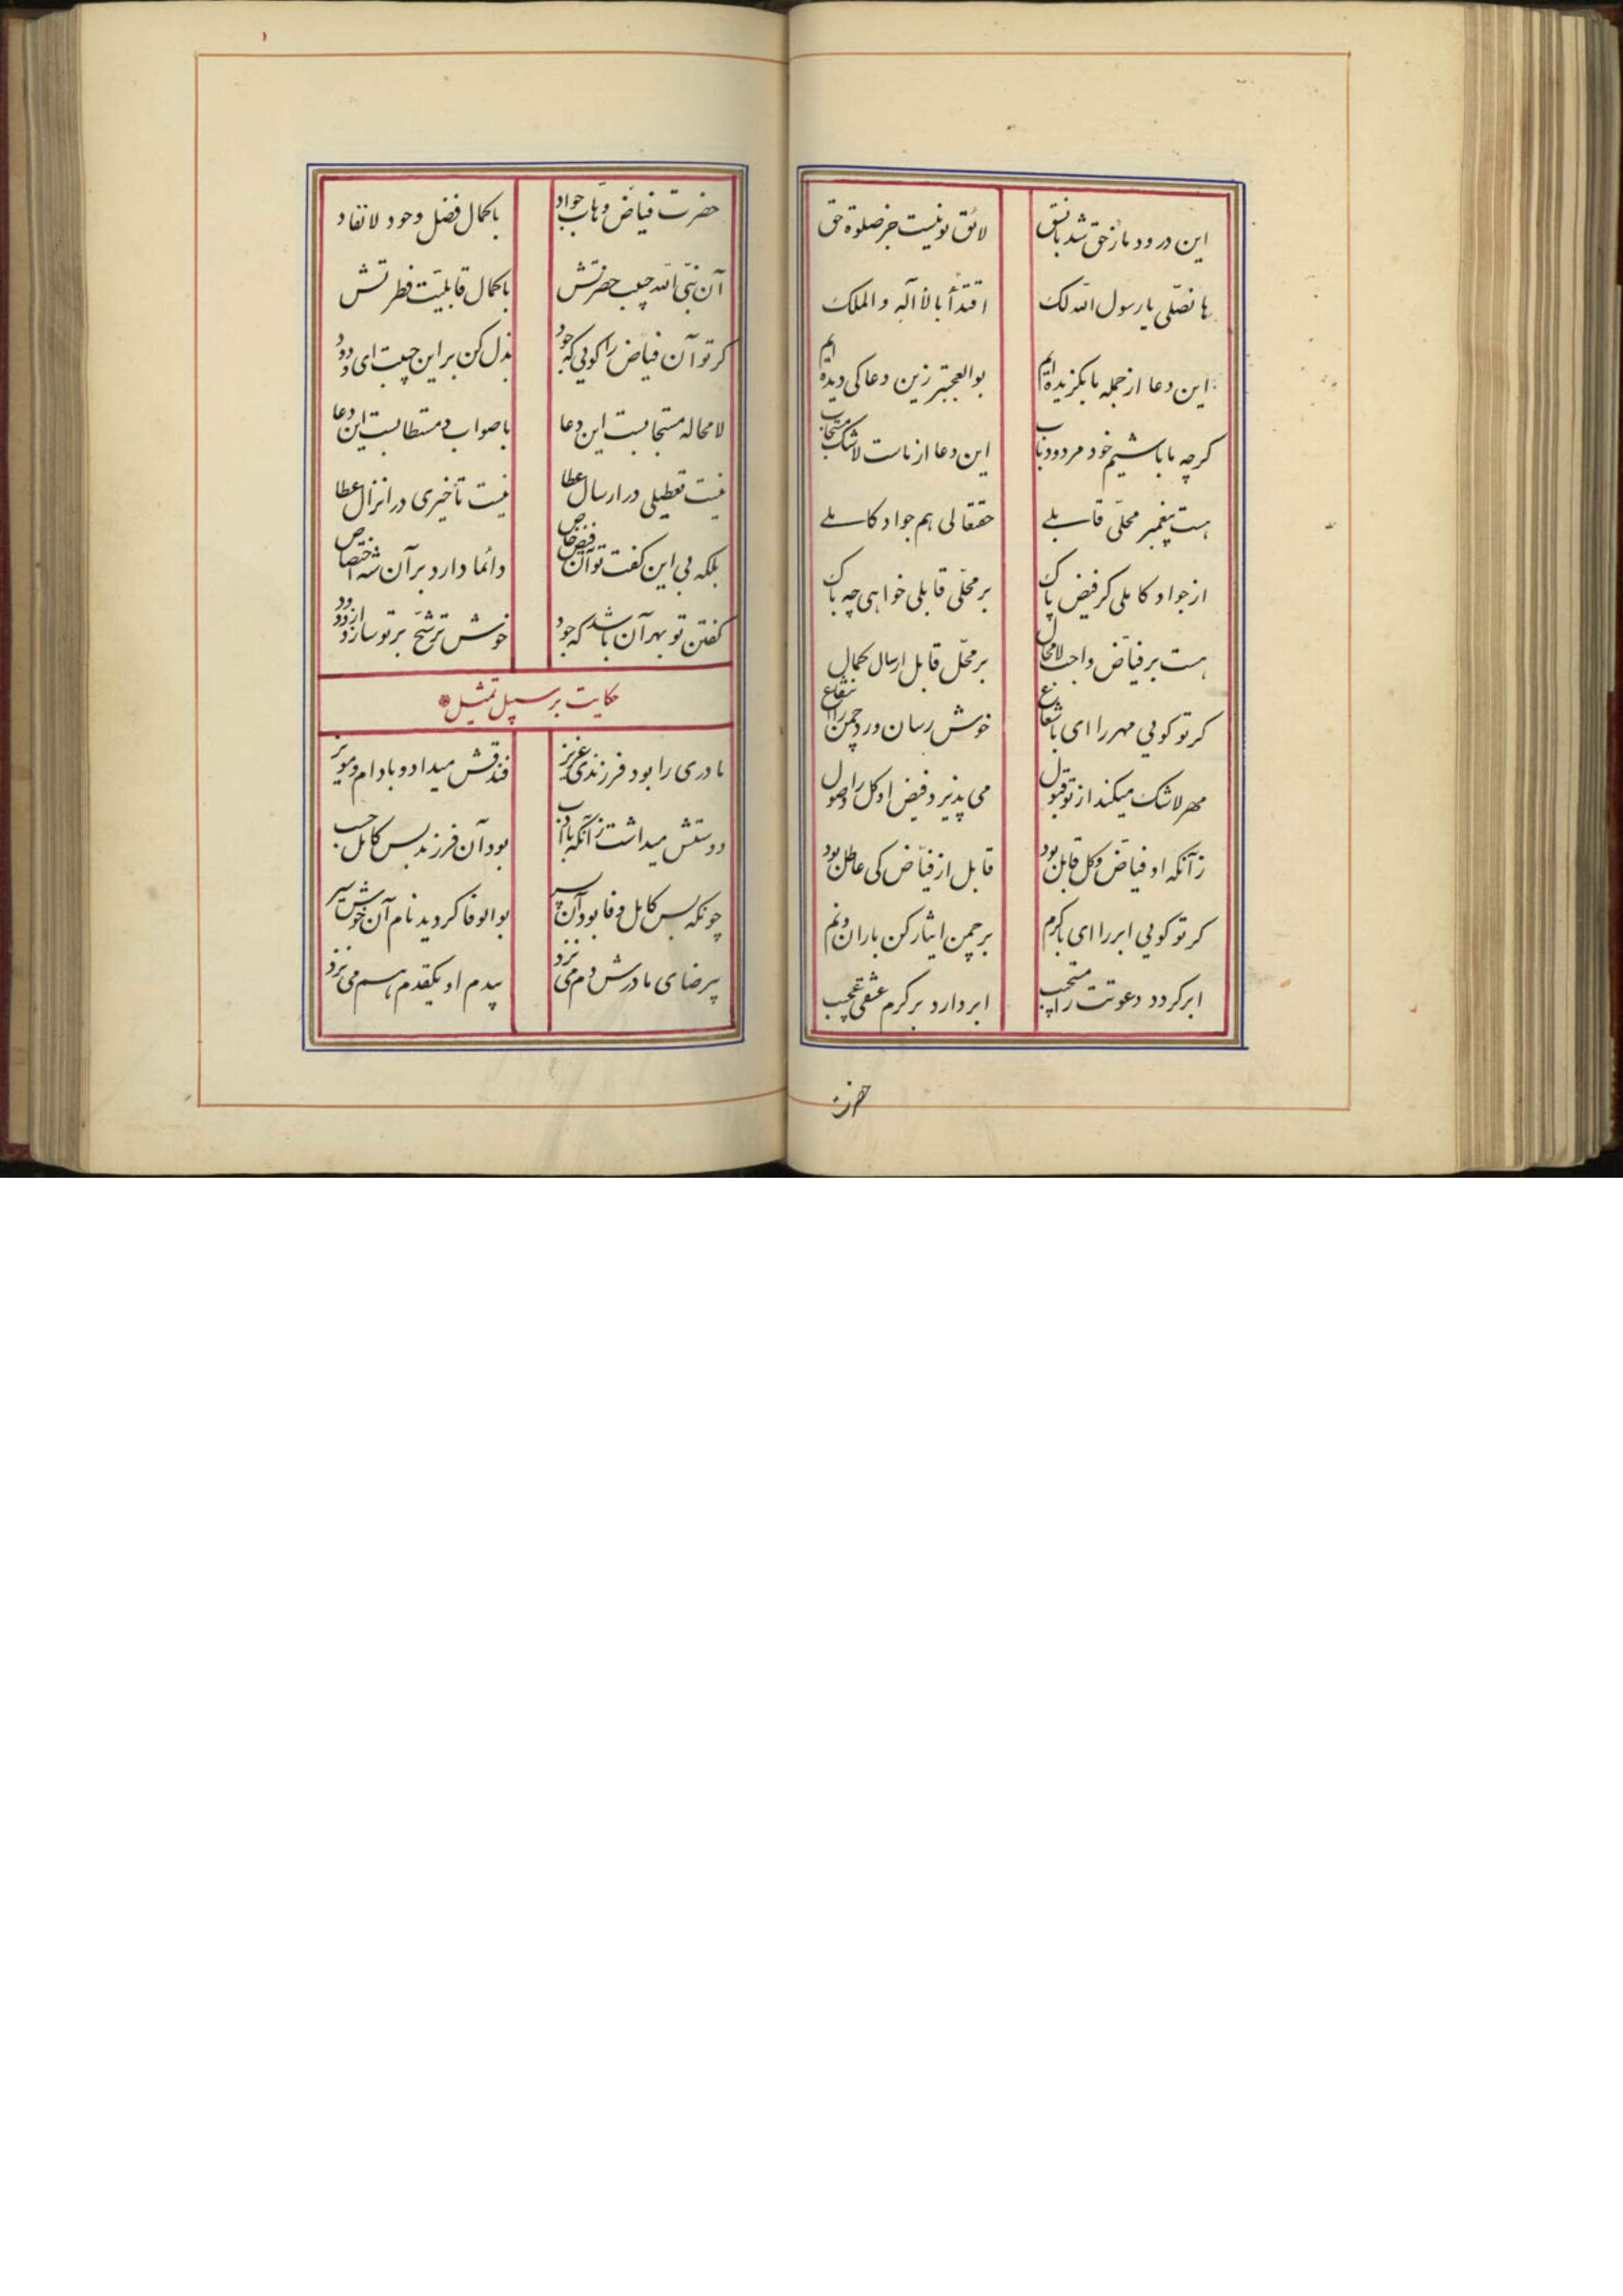 این درود ما ز حق شد با نسق لائق تو نیست جز صلوة حق
ها نصلّی یا رسول الله لک اقتدأ بالأله و الملک
این دعا از جمله ما بگزیده‌ایم بوالعجبتر زین دعا کی دیده‌ایم
کرچه ما باشیم خود مردود باب این دعا از ماست لاشک مستجاب
هست پیغمبر محلّی قابلے حقتعالی هم جواد کاملے
از جواد کاملی کر فیض پاک بر محلّی قابلی خواهی چه باک
هست بر فیاّض واجب لامحال بر محلّ قابل ارسال کمال
کر تو کویی مهر را ای با شعاع خوش رسان ورد چمن را انتفاع
مهر لاشک میکند از تو قبول می پذیرد فیض او کل را وصول
زآنکه او فیاّض و کل قابل بود قابل از فیاّض کی عاطل بود
کر تو کویی ابر را ای با کرم بر چمن ایثار کن باران و نم
ابر کردد دعوتت را مستجیب ابر دارد بر کرم عشقی عجیب
حضرت
حضرت فیاّض وهّاب جواد با کمال فضل و جود لانفاد
آن نبّی الله حبیب حضرتش با کمال قابلیّت فطرتش
کر تو آن فیاض را کویی که جود بذل کن بر این حبیبت ای ودود
لامحاله مستجابست این دعا با صواب و مستطابست این دعا
نیست تعطیلی در ارسال عطا نیست تأخیری در انزال عطا
بلکه بی این کفت تو آن فیض خاص دائما دارد بر آن شه اختصاص
کفتن تو بهر آن باشد که جود خوش ترشّح بر تو سازد زود زود
حکایت بر سبیل تمثیل
مادری را بود فرزندی عزیز فندقش میداد و بادام و مویز
دوستش میداشت زآنکه با ادب بود آن فرزند بس کامل حسب
چونکه بس کامل وفا بود آن پسر بوالوفا کردید نام آن خوش سیر
بیرضای مادرش دم می نزد بیدم او یکقدم هم می نزد